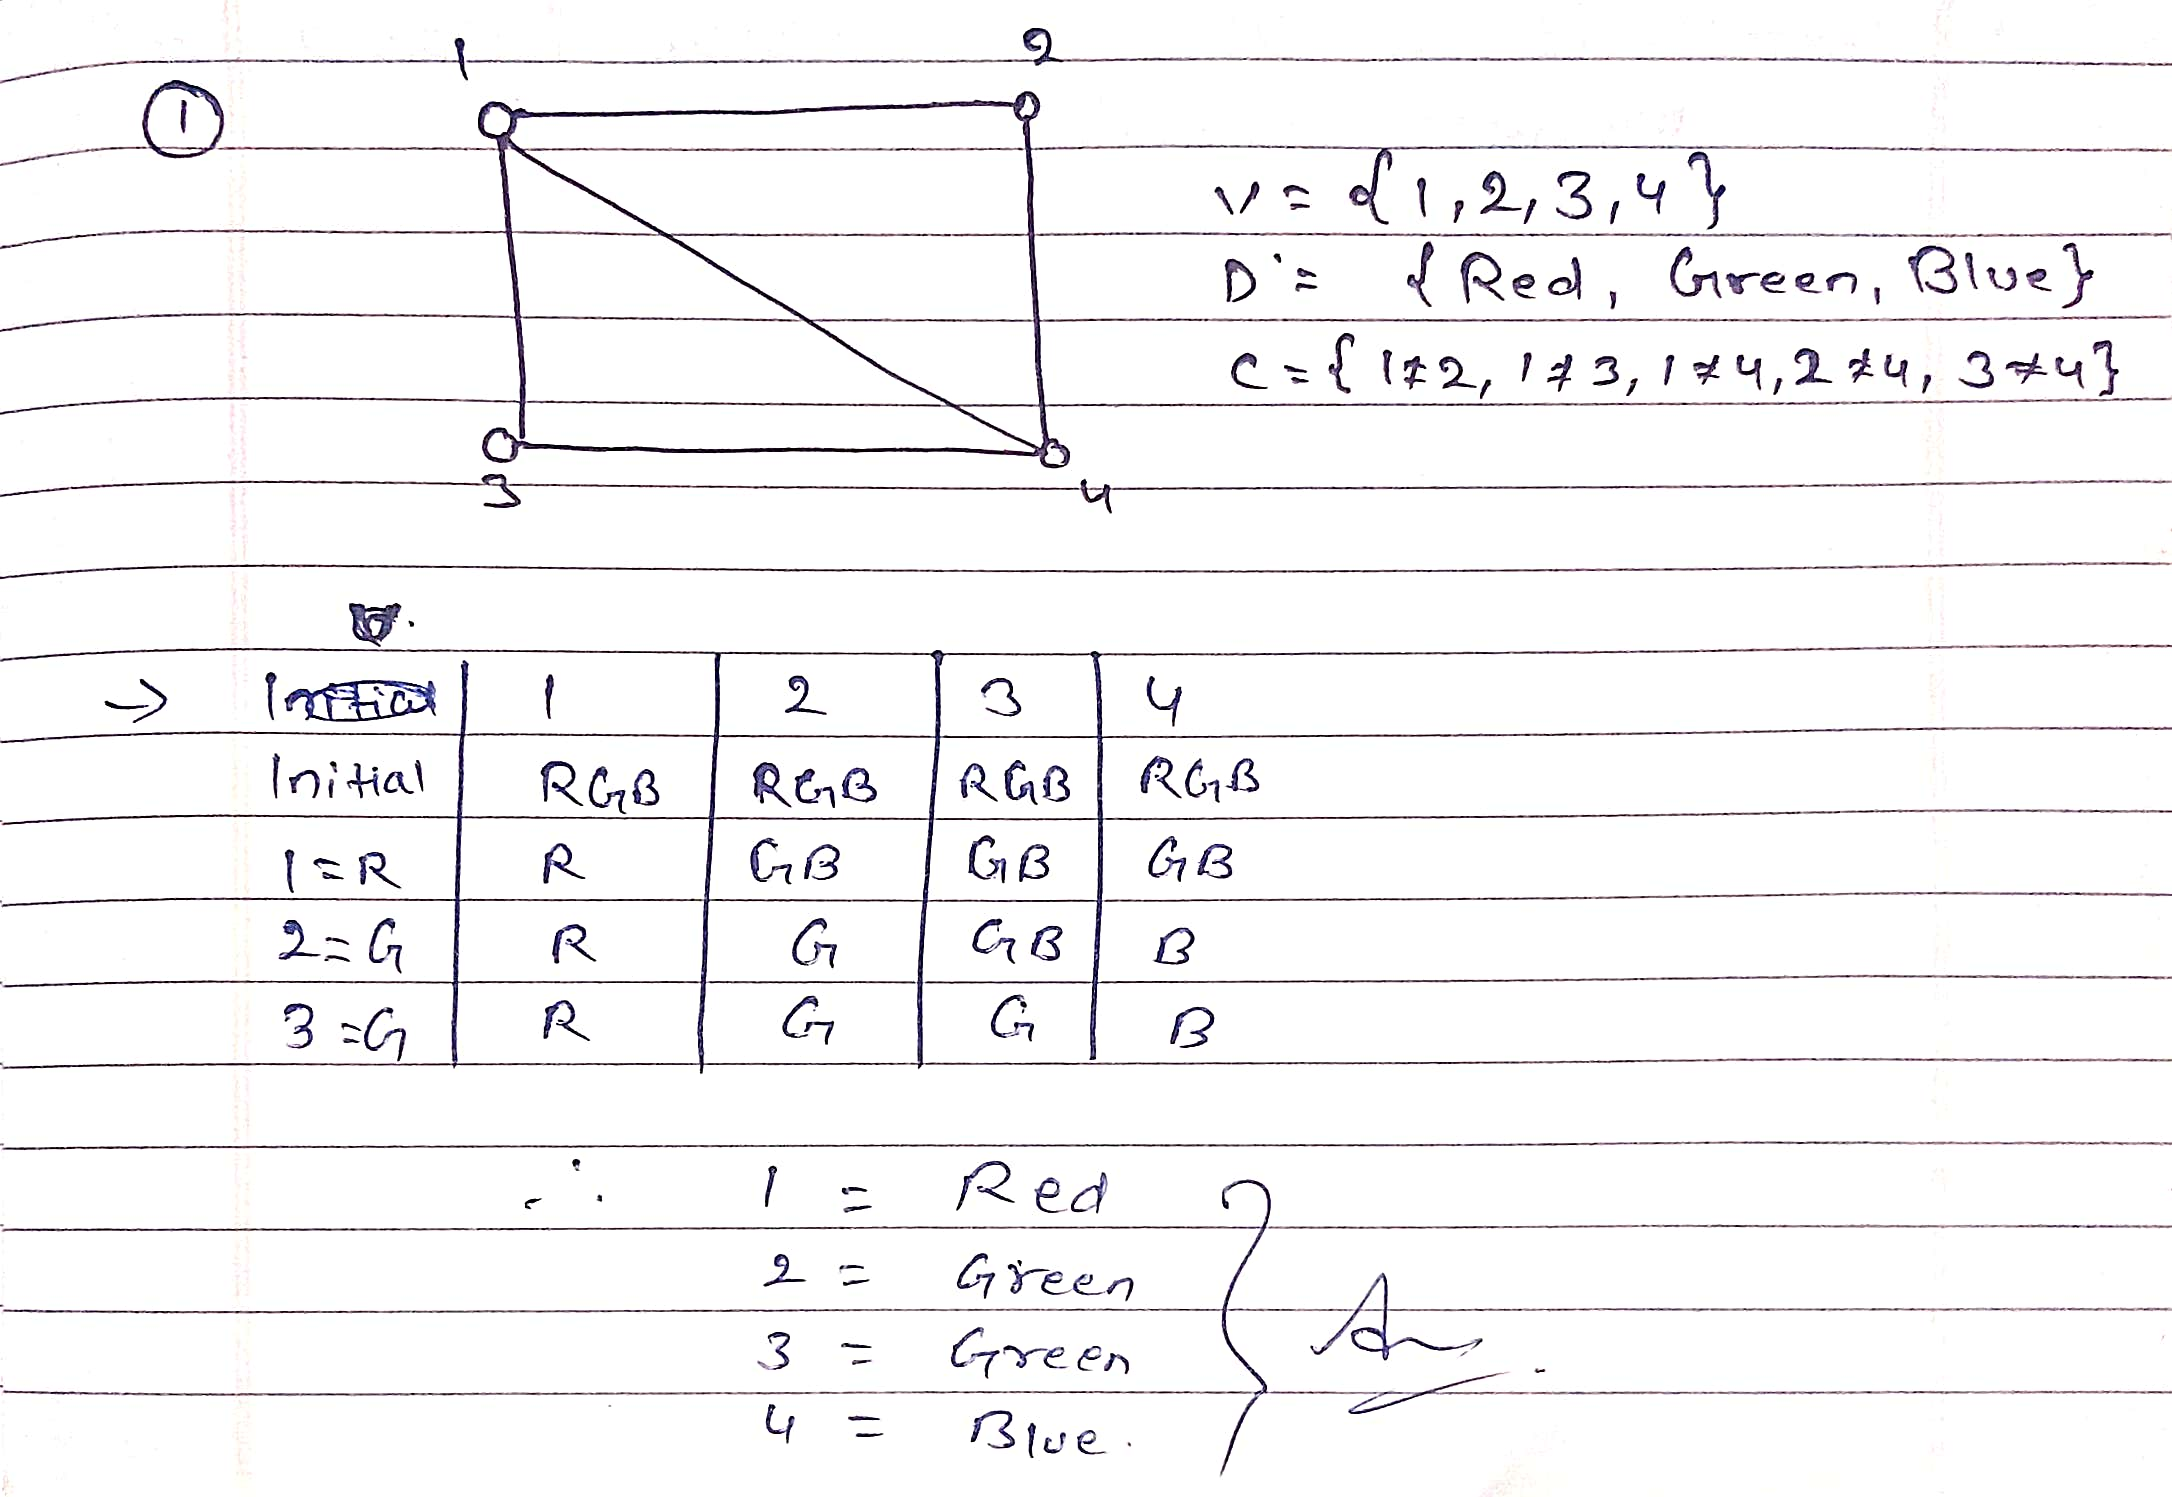 1 2
①
V = {1, 2, 3, 4}
D = {Red, Green, Blue}
C = {1≠2, 1≠3, 1≠4, 2≠4, 3≠4}
3 4
→ 1 2 3 4
Initial RGB RGB RGB RGB
1=R R GB GB GB
2=G R G GB B
3=G R G G B
∴ 1 = Red
2 = Green
3 = Green
4 = Blue.